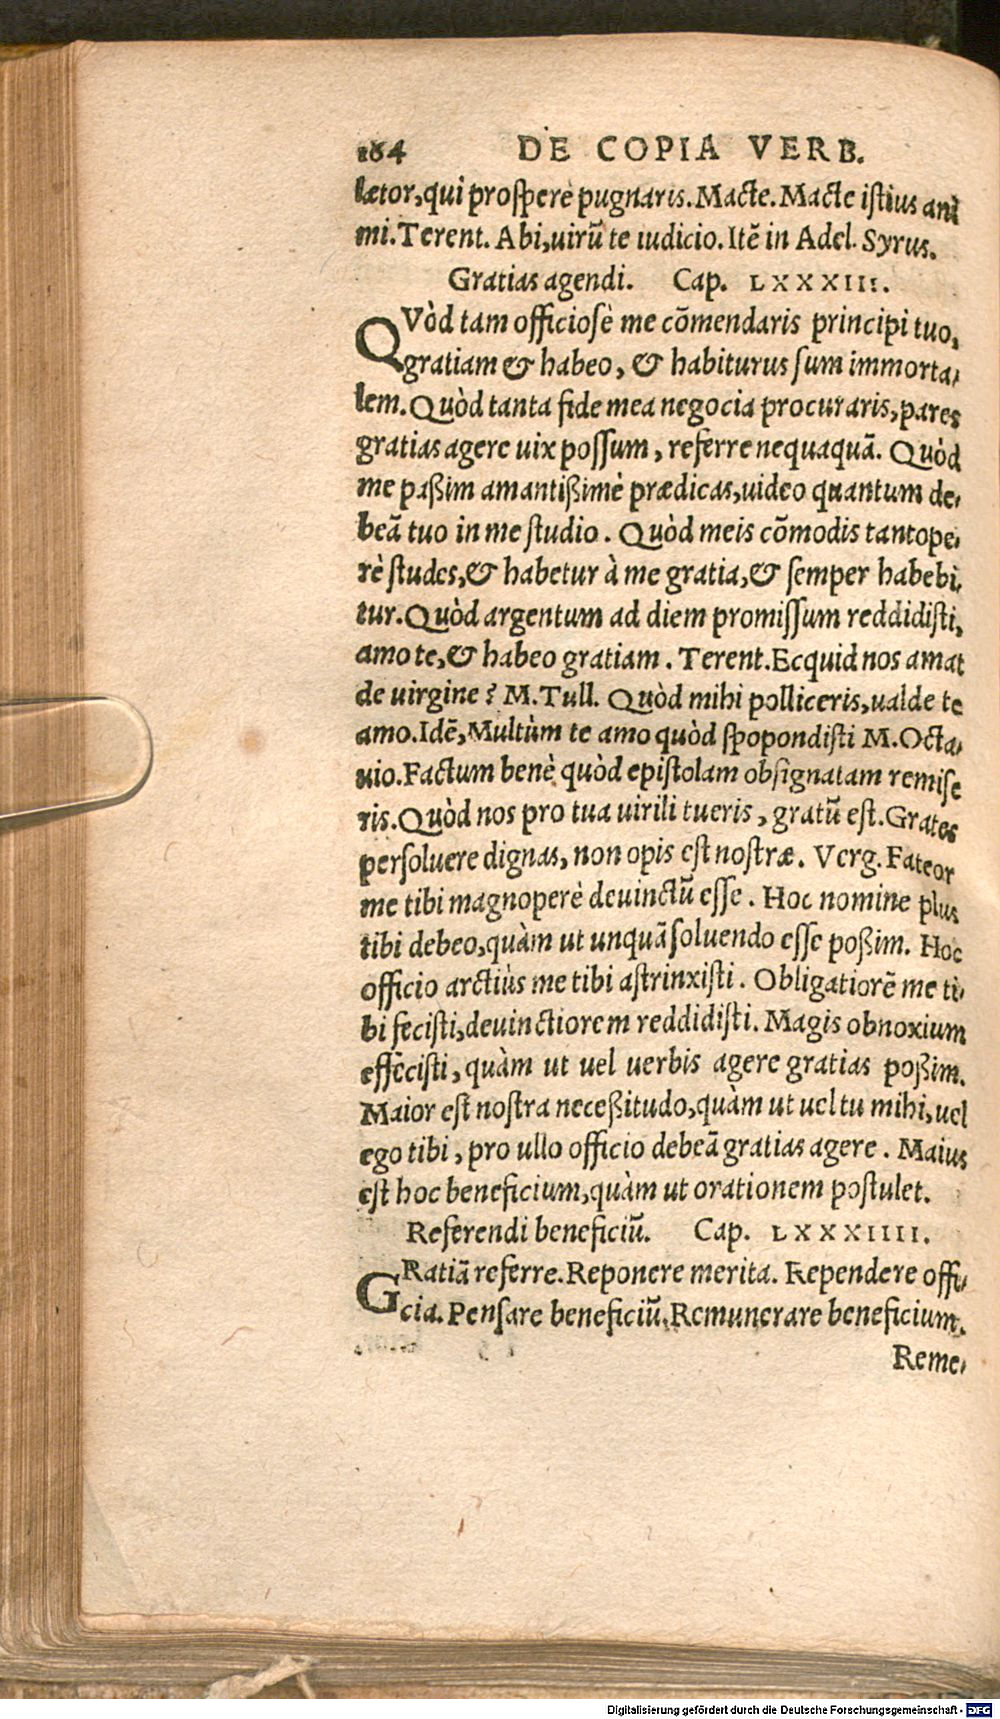 184 DE COPIA VERB.
lætor, qui prosperè pugnaris. Macte. Macte istius ani
mi. Terent. Abi, uirũ te iudicio. Itẽ in Adel. Syrus.
Gratias agendi. Cap. LXXXIII.
QVòd tam officiosè me cõmendaris principi tuo,
gratiam & habeo, & habiturus sum immorta-
lem. Quòd tanta fide mea negocia procuraris, pares
gratias agere uix possum, referre nequaquã. Quòd
me paßim amantißimè prædicas, uideo quantum de-
beã tuo in me studio. Quòd meis cõmodis tantope-
rè studes, & habetur à me gratia, & semper habebi-
tur. Quòd argentum ad diem promissum reddidisti,
amo te, & habeo gratiam. Terent. Ecquid nos amat
de uirgine? M. Tull. Quòd mihi polliceris, ualde te
amo. Idẽ, Multùm te amo quòd spopondisti M. Octa-
uio. Factum benè quòd epistolam obsignatam remise
ris. Quòd nos pro tua uirili tueris, gratũ est. Grates
persoluere dignas, non opis est nostræ. Verg. Fateor
me tibi magnoperè deuinctũ esse. Hoc nomine plus
tibi debeo, quàm ut unquã soluendo esse poßim. Hoc
officio arctiùs me tibi astrinxisti. Obligatiorẽ me ti-
bi fecisti, deuinctiorem reddidisti. Magis obnoxium
effecisti, quàm ut uel uerbis agere gratias poßim.
Maior est nostra neceßitudo, quàm ut uel tu mihi, uel
ego tibi, pro ullo officio debeã gratias agere. Maius
est hoc beneficium, quàm ut orationem postulet.
Referendi beneficiũ. Cap. LXXXIIII.
GRatiã referre. Reponere merita. Rependere offi-
cia. Pensare beneficiũ. Remunerare beneficium.
Reme-
Digitalisierung gefördert durch die Deutsche Forschungsgemeinschaft - DFG